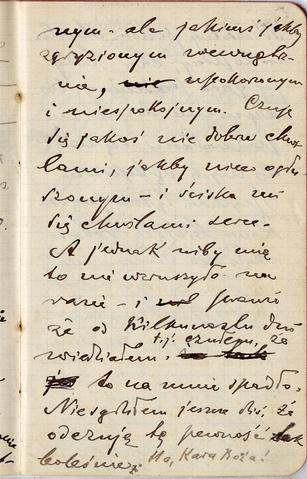 nym - ale jakimś jakby
zgryzionym wewnętrz-
nie, nie upokorzonym
i niespokojnym. Czuję
się jakoś nie dobrze chwi-
lami, jakby nieco ogłu
szonym - i ściska mi
się chwilami serce.
A jednak niby mię
to nie wzruszyło na
razie - i prawie
że od kilkunastu dni
wiedziałem, t.j. czułem, że
to na mnie spadło.
Nie sądziłem jeszcze dziś, że
odczuję tę pewność tak
boleśnie. Ho, Kara Boża!